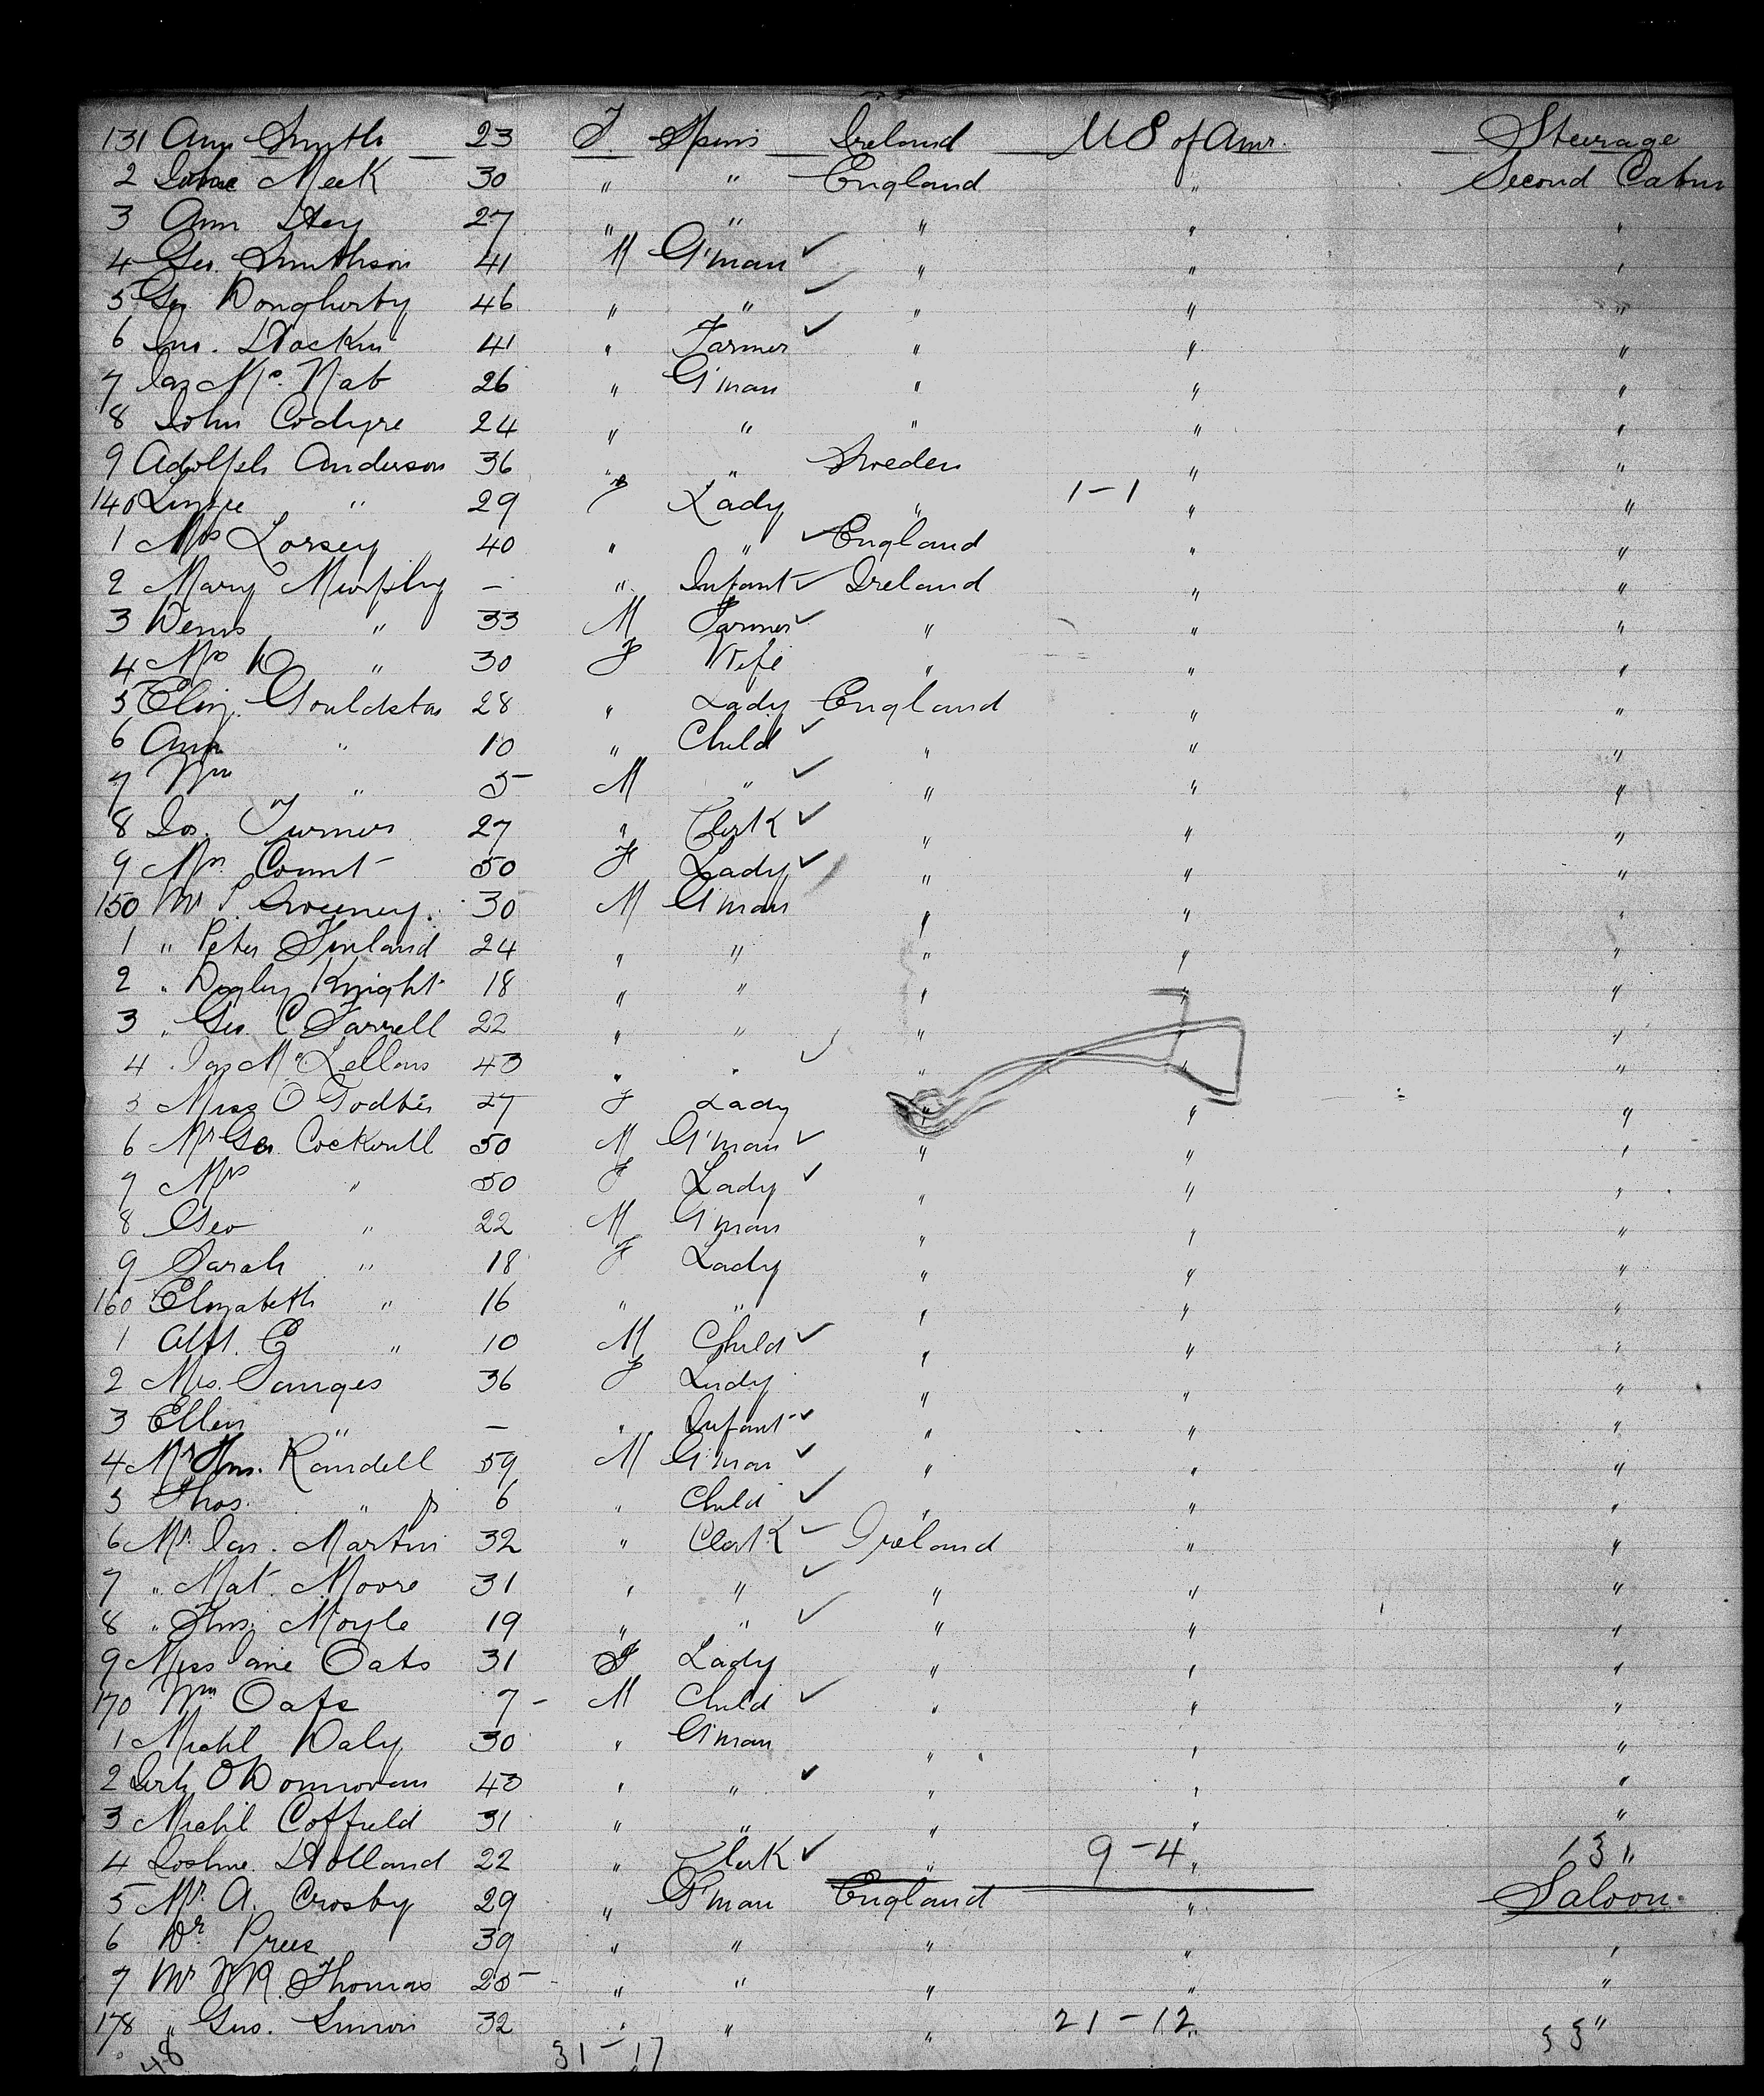 131 Ann Smith 23 F. Spins Ireland US of Amr. Steerage
2 Meek 30 " " England " Second Cabin
3 Ann Hey 27 " " " " "
4 Geo. Smithson 41 M G'man " " "
5 Geo Dougherty 46 " " " " "
6 Jno. Hockin 41 " Farmer " " "
7 Jas Mc. Nab 26 " G'man " " "
8 John Codyre 24 " " " " "
9 Adolph Anderson 36 " " Sweden " "
140 " 29 F Lady " 1-1 " "
1 Mrs Lorsey 40 " " England " "
2 Mary Murphy - " Infant Ireland " "
3 Denis " 33 M Farmer " " "
4 Mrs D " 30 F Wife " " "
5 Eliz. Gouldston 28 " Lady England " "
6 Ann " 10 " Child " " "
7 Wm " 5 M " " " "
8 Jos. Turner 27 " Clerk " " "
9 Mrs. Count 50 F Lady " " "
150 Mr P. Sweeney. 30 M G'man " " "
1 " Peter Finland 24 " " " " "
2 " Knight 18 " " " " "
3 " Geo. C Farrell 22 " " " " "
4 " Jas Mc Lellan 43 " " " " "
5 Miss O Godber 27 F Lady " " "
6 Mr Geo. Cockerill 50 M G'man " " "
7 Mrs " 50 F Lady " " "
8 Geo " 22 M G'man " " "
9 Sarah " 18 F Lady " " "
160 Elizabeth " 16 " " " " "
1 Alfd. G " 10 M Child " " "
2 Mrs. 36 F Lady " " "
3 Ellen " - " Infant " " "
4 Mr Thos. Randell 59 M G'man " " "
5 Thos. " Jr 6 " Child " " "
6 Mr. Jas. Martin 32 " Clerk Ireland " "
7 " Mat. Moore 31 " " " " "
8 " Thos. Moyle 19 " " " " "
9 Miss Jane Oats 31 F Lady " " "
170 Wm Oats 7 - M Child " " "
1 Michl Daly 30 " G'man " " "
2 O'Donnovan 43 " " " " "
3 Michl Coffield 31 " " " " "
4 Holland 22 " Clerk " 9-4 " 13 "
5 Mr. A. Crosby 29 " G'man England " Saloon
6 Dr. Prees 39 " " " " "
7 Mr W R. Thomas 25 " " " " "
178 " Gus. Simon 32 " " " 21-12 " 33 "
48 31-17